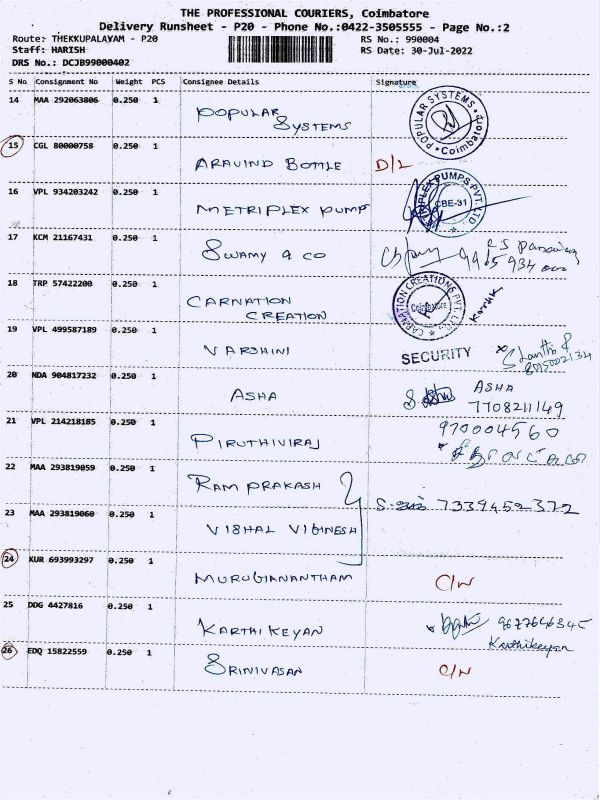 THE PROFESSIONAL COURIERS, Coimbatore
Delivery Runsheet - P20 - Phone No.:0422-3505555 - Page No.:2
Route: THEKKUPALAYAM - P20
RS No.: 990004
Staff: HARISH
RS Date: 30-Jul-2022
DRS No.: DCJB99000402
S No Consignment No Weight PCS Consignee Details Signature
14 MAA 292063806 0.250 1 POPULAR SYSTEMS POPULAR SYSTEMS * Coimbatore
15 CGL 80000758 0.250 1 ARAVIND BOTTLE D/L
16 VPL 934203242 0.250 1 METRIPLEX PUMPS PUMPS PVT. LTD CBE-31
17 KCM 21167431 0.250 1 SWAMY & CO
18 TRP 57422200 0.250 1 CARNATION CREATION CARNATION CREATIONS PVT. LTD. Coimbatore Karthik
19 VPL 499587189 0.250 1 VARSHINI SECURITY Shanthi 8015002134
20 NDA 904817232 0.250 1 ASHA ASHA 7708211149
21 VPL 214218185 0.250 1 PIRUTHIVIRAJ 970004560
22 MAA 293819059 0.250 1 RAM PRAKASH 7339452372
23 MAA 293819060 0.250 1 VISHAL VIGINESH
24 KUR 693993297 0.250 1 MURUGIANANTHAM C/N
25 DDG 4427816 0.250 1 KARTHIKEYAN 9677646345 Karthikeyan
26 EDQ 15822559 0.250 1 SRINIVASAN C/N